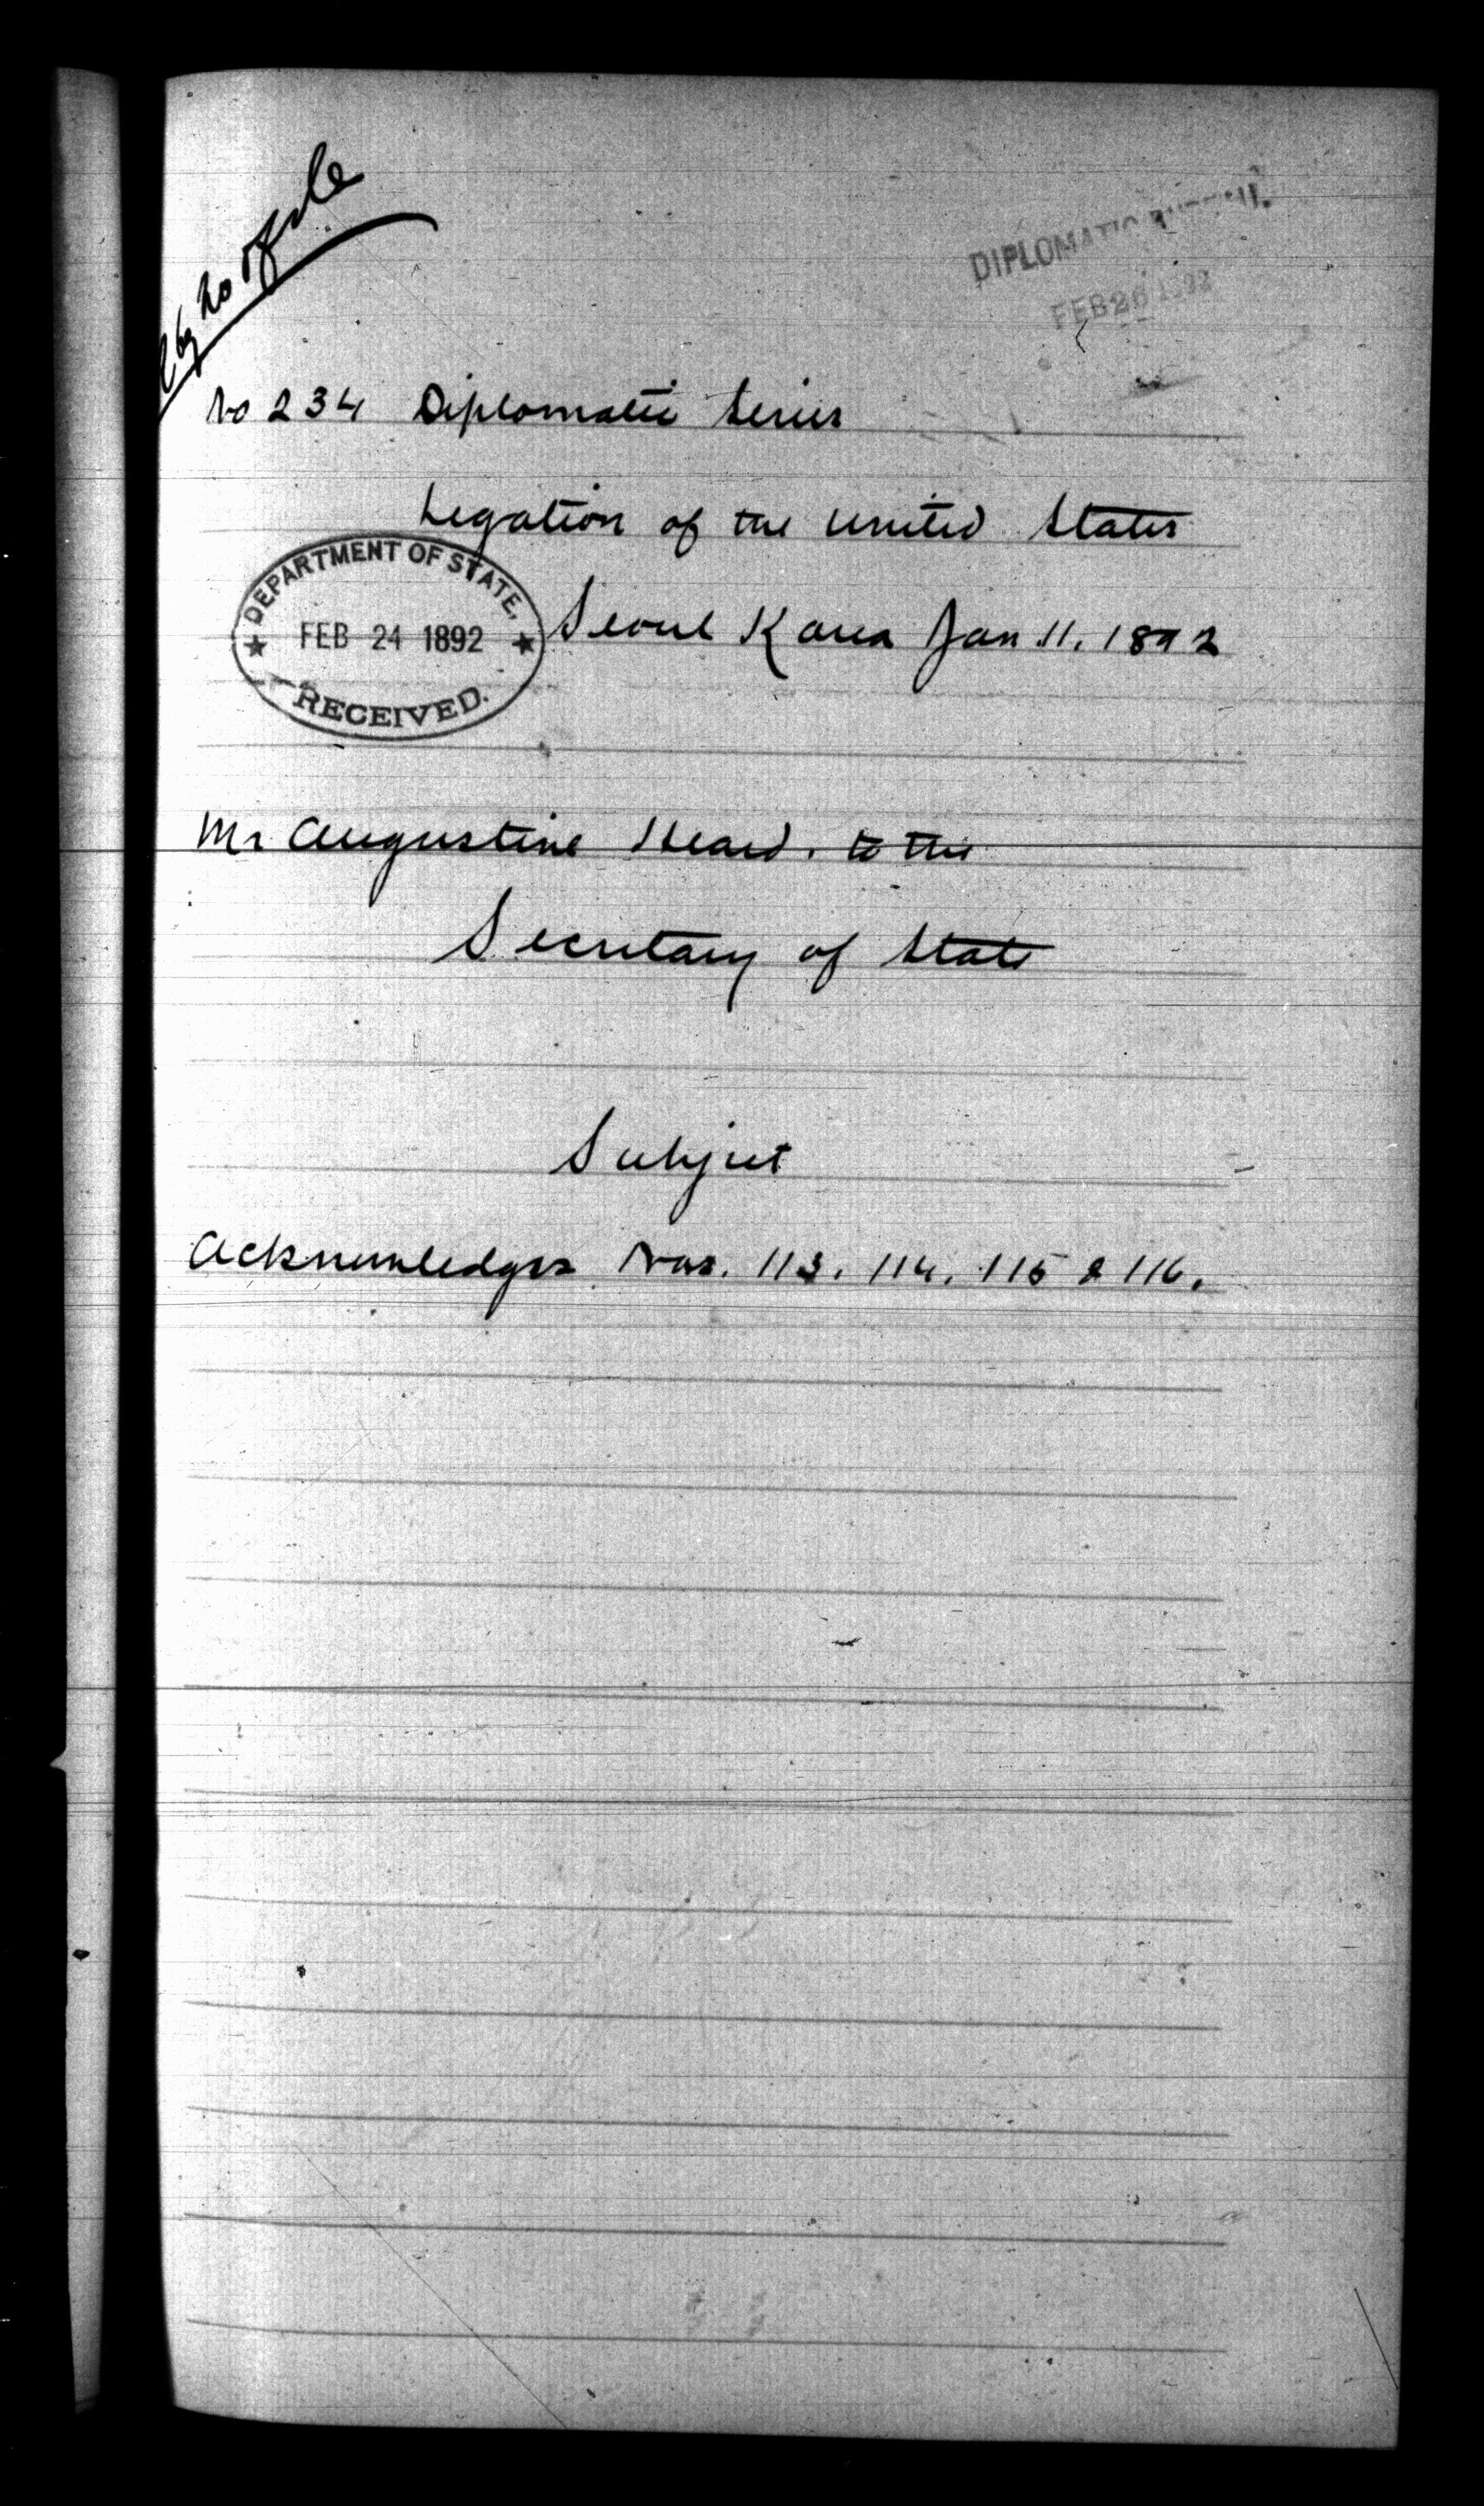 file
DIPLOMATIC BUREAU.
FEB 26 1892
No 234 Diplomatic Series
Legation of the United States
DEPARTMENT OF STATE,
FEB 24 1892
RECEIVED.
Seoul Korea Jan 11. 1892
Mr Augustine Heard. to the
Secretary of State
Subject
Acknowledges Nos. 113. 114. 115 & 116.